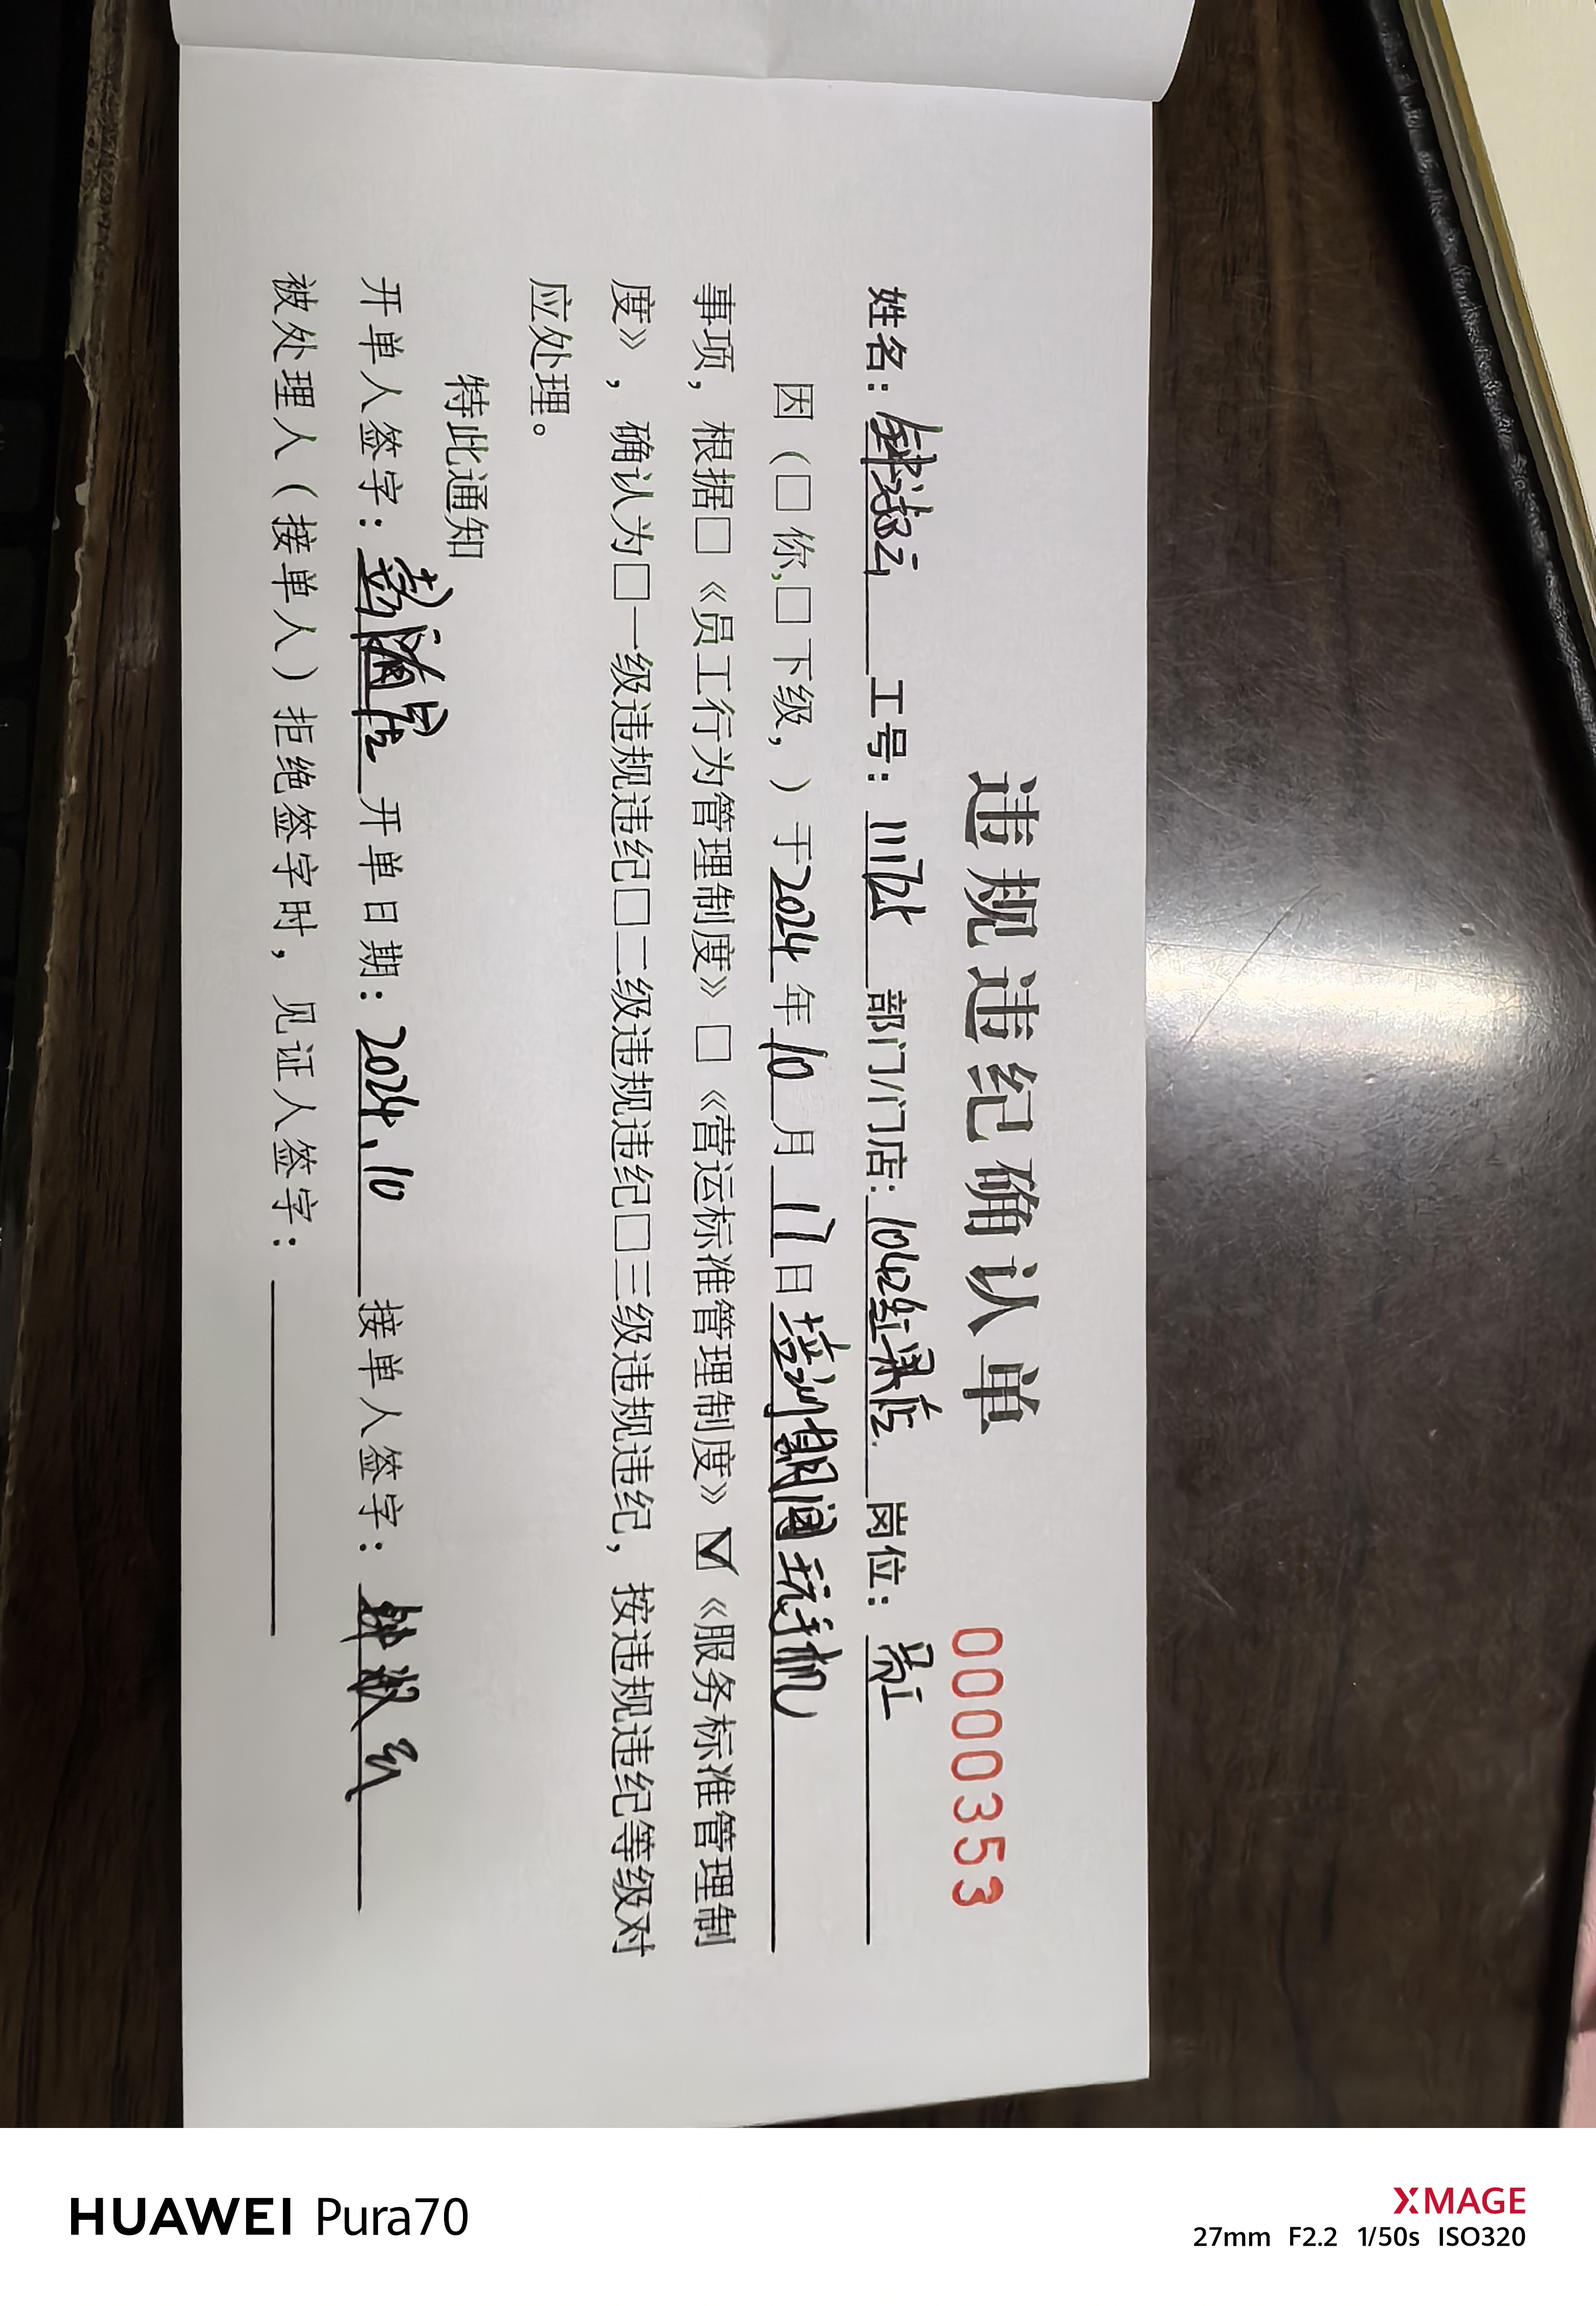 违规违纪确认单
0000353
姓名： 工号： 部门/门店：1042红梁店 岗位：员工
因（□你,□下级，）于2024年10月17日培训期间玩手机
事项，根据□《员工行为管理制度》□《营运标准管理制度》☑《服务标准管理制
度》，确认为□一级违规违纪□二级违规违纪□三级违规违纪，按违规违纪等级对
应处理。
特此通知
开单人签字： 开单日期：2024.10 接单人签字：
被处理人（接单人）拒绝签字时，见证人签字：
HUAWEI Pura70
XMAGE
27mm F2.2 1/50s ISO320